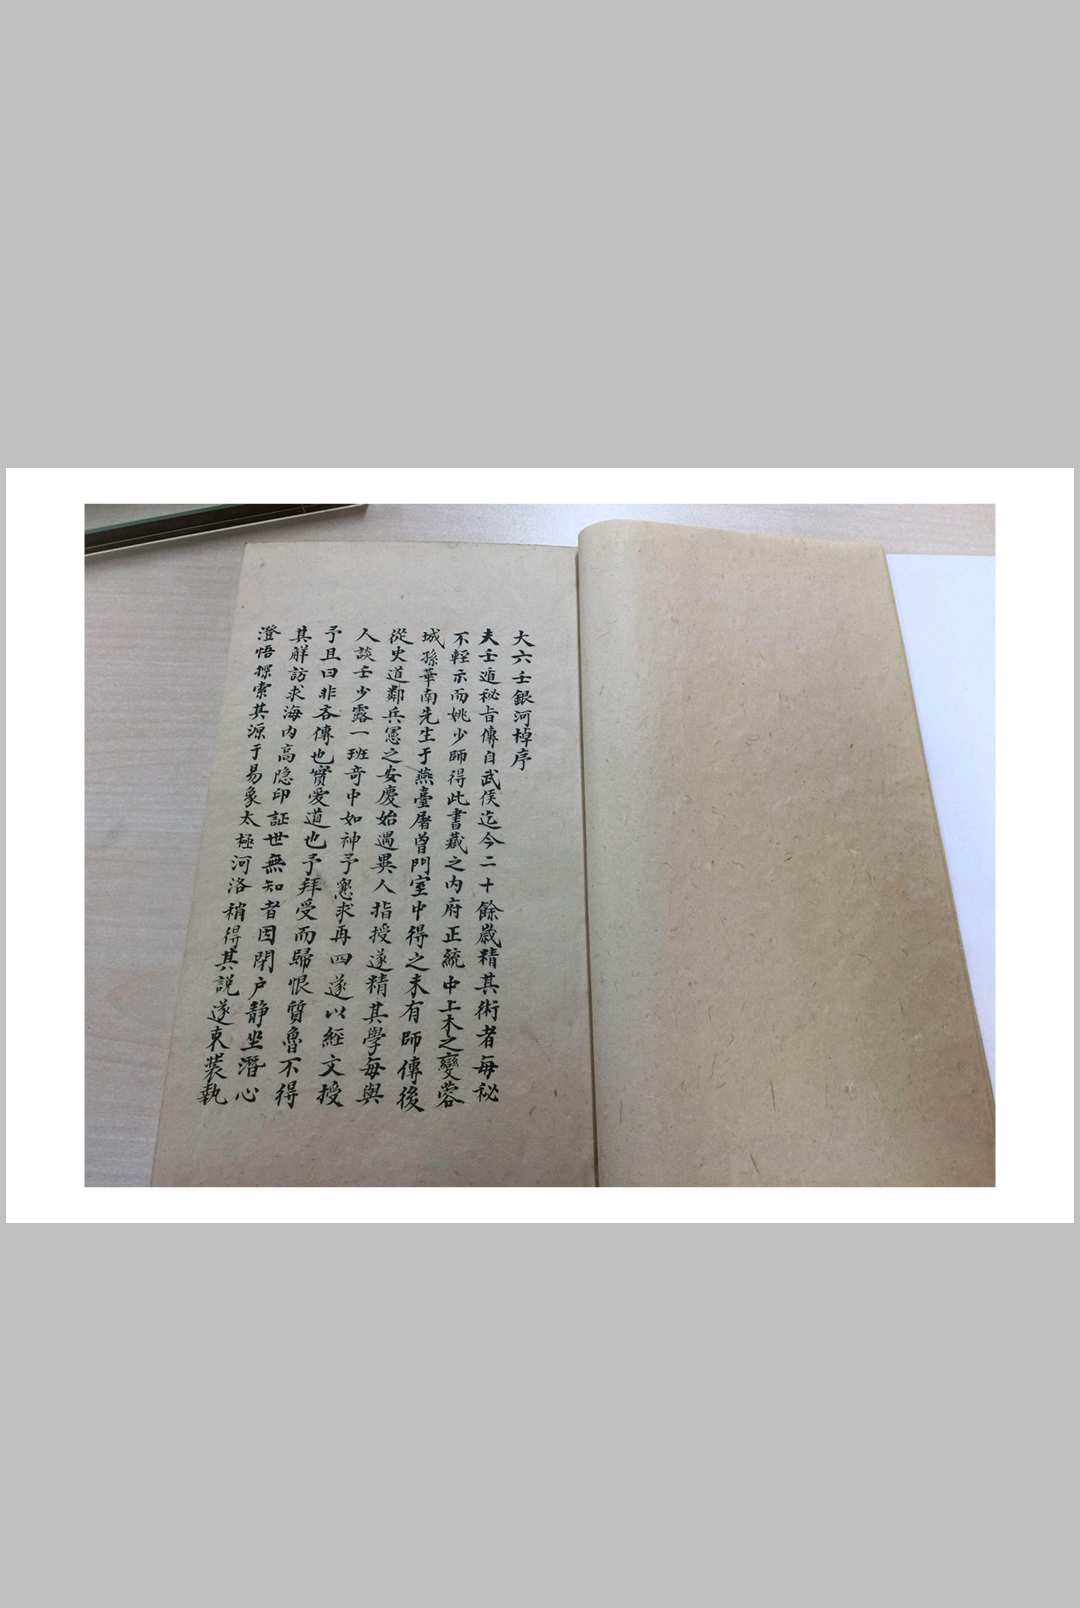 大六壬銀河棹序
夫壬遁秘旨傳自武侯迄今二十餘歲精其術者每秘
不輕示而姚少師得此書藏之内府正統中土木之變蓉
城孫華南先生于燕臺屠曾門室中得之未有師傳後
從史道鄰兵憲之安慶始遇異人指授遂精其學每與
人談壬少露一班奇中如神予懇求再四遂以經文授
予且曰非吝傳也實愛道也予拜受而歸恨質魯不得
其解訪求海内高隐印証世無知者因閉户靜坐潛心
澄悟探索其源于易象太極河洛稍得其説遂束裝執